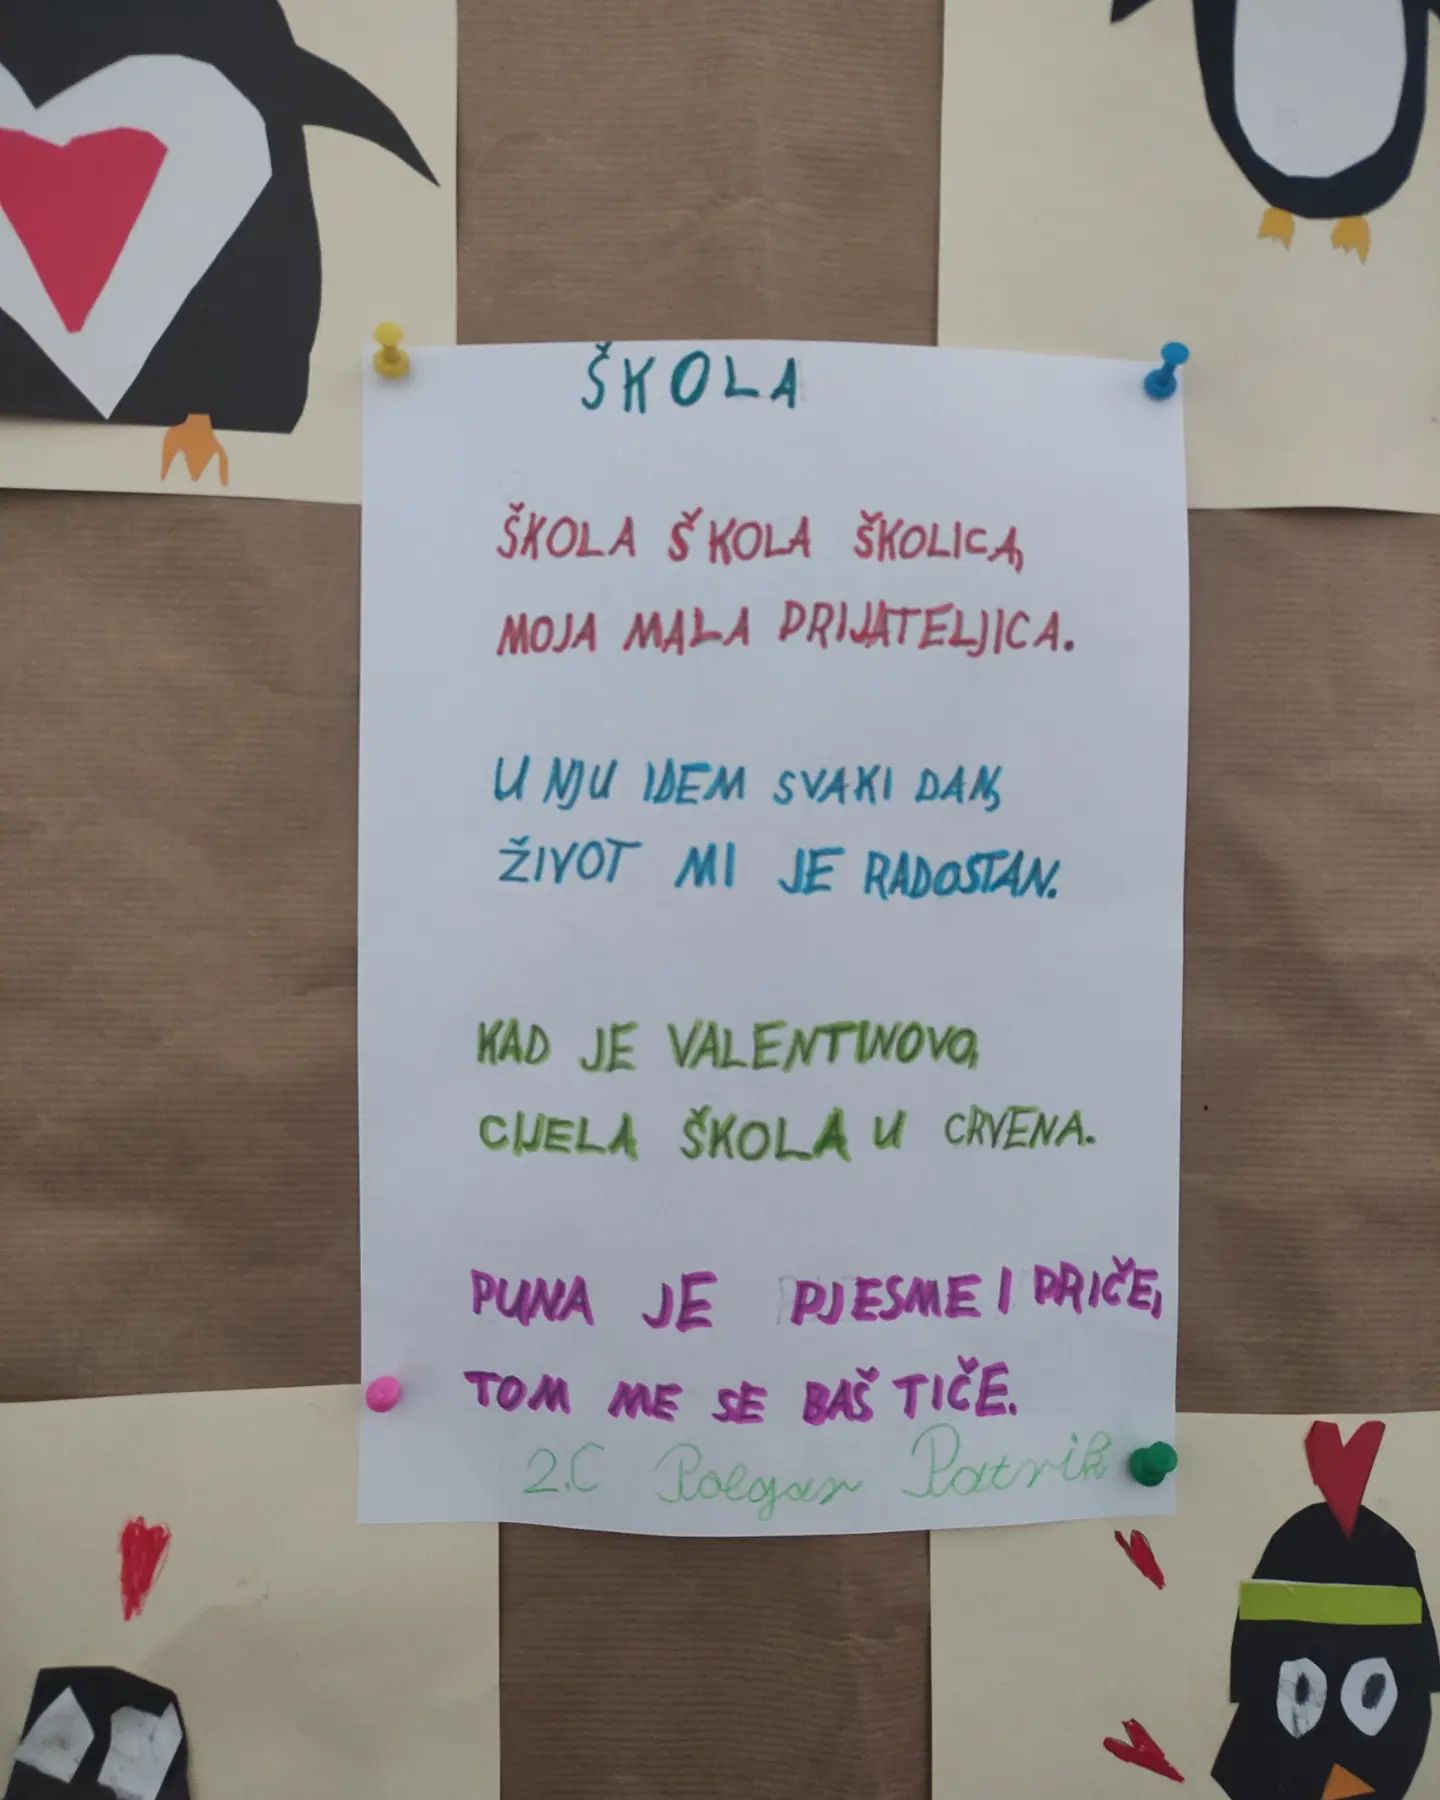 ŠKOLA
ŠKOLA ŠKOLA ŠKOLICA,
MOJA MALA PRIJATELJICA.
U NJU IDEM SVAKI DAN,
ŽIVOT MI JE RADOSTAN.
KAD JE VALENTINOVO,
CIJELA ŠKOLA U CRVENA.
PUNA JE PJESME I PRIČE,
TOM ME SE BAŠ TIČE.
2.C Polgar Patrik